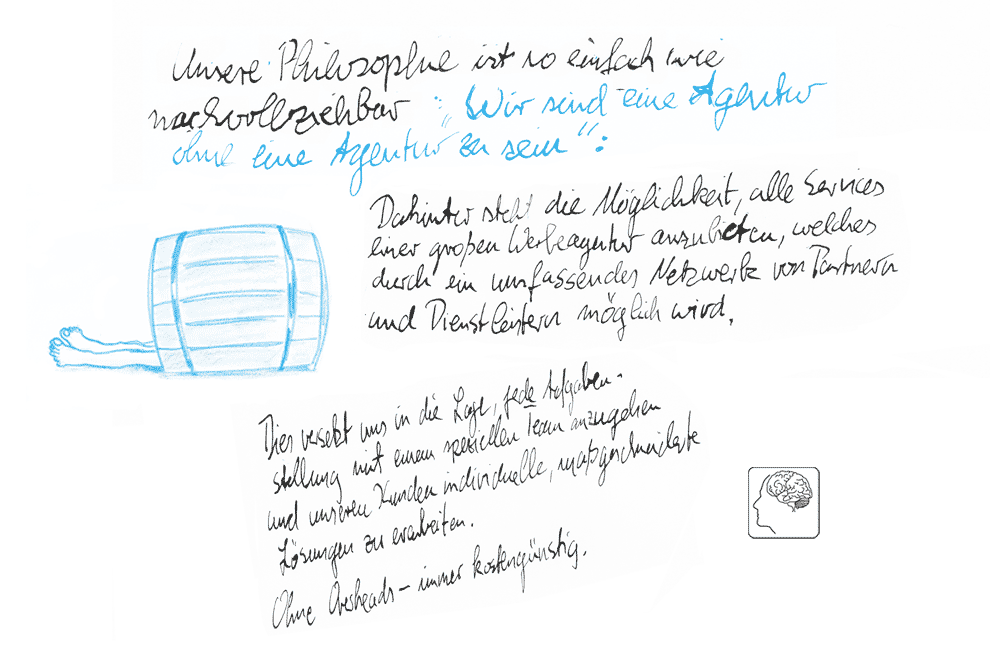 Unsere Philosophie ist so einfach wie
nachvollziehbar: „Wir sind eine Agentur
ohne eine Agentur zu sein“:
Dahinter steht die Möglichkeit, alle Services
einer großen Werbeagentur anzubieten, welches
durch ein umfassendes Netzwerk von Partnern
und Dienstleistern möglich wird.
Dies versetzt uns in die Lage, jede Aufgaben-
stellung mit einem speziellen Team anzugehen
und unseren Kunden individuelle, maßgeschneiderte
Lösungen zu erarbeiten.
Ohne Overheads – immer kostengünstig.